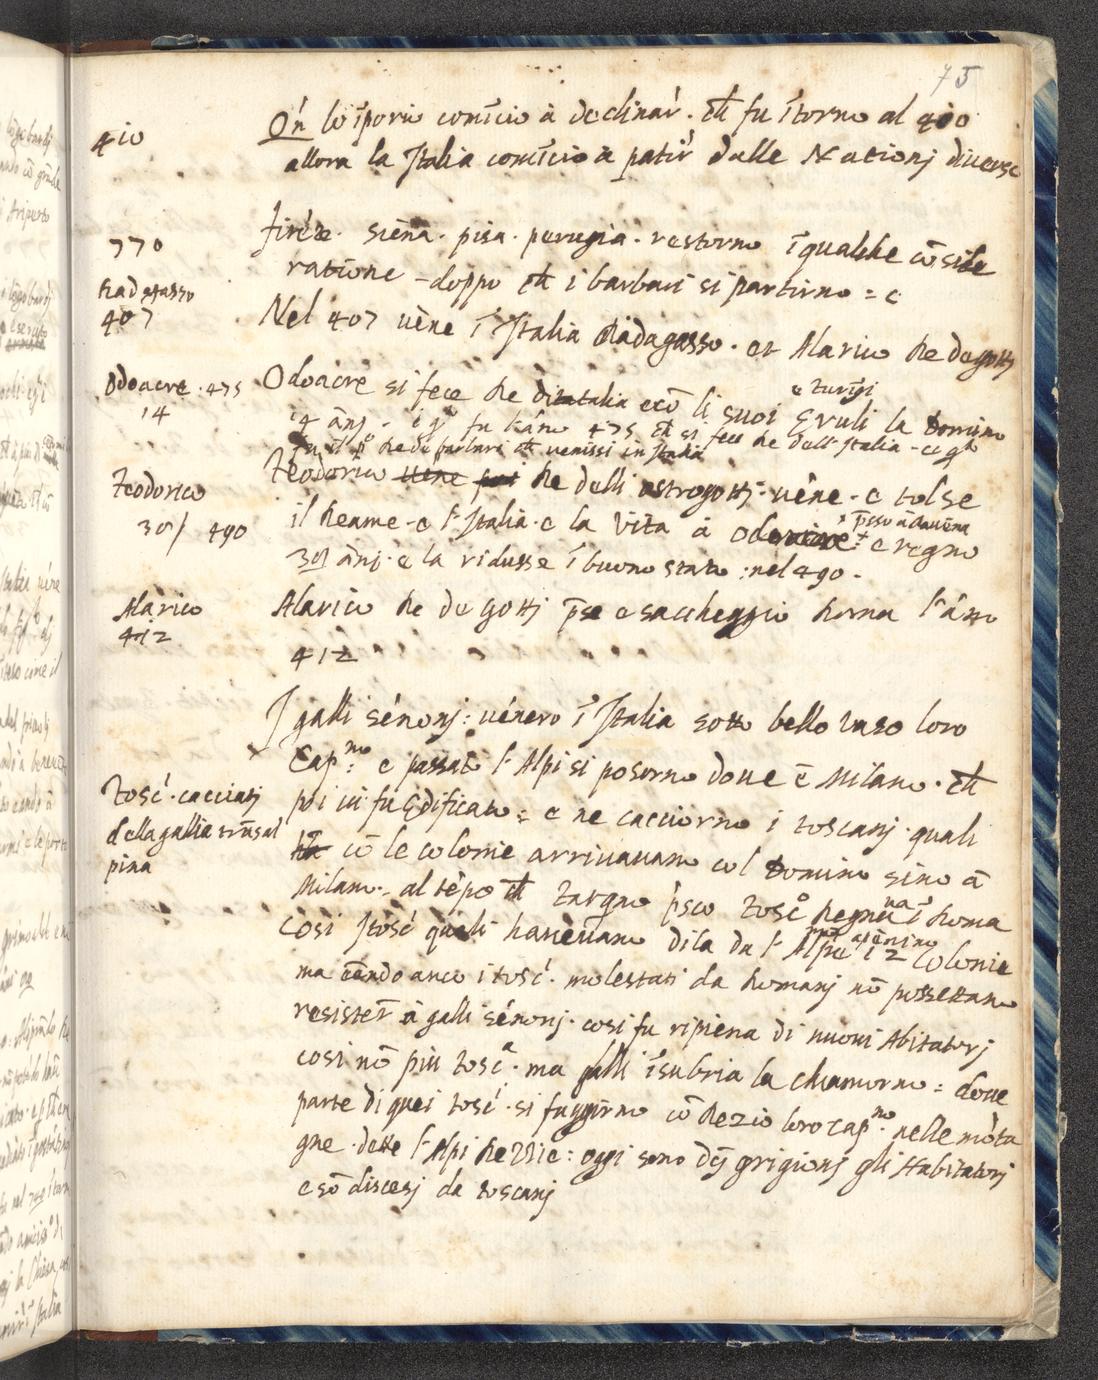 75
410
Qñ lo ĩperio comĩcio à declinar̃. ch̃ fu ĩtorno al 400
allora la Italia comĩcio à patir̃ dalle Nationj diverse
770
firẽze. siena. pisa. perugia. restorno ĩ qualche cõside
ratione - doppo ch̃ i barbari si partirno = e
Radagasso
407
Nel 407 uẽne ĩ Italia Radagasso. et Alarico Re de gottj
Odoacre. 475
14
Odoacre si fece Re di Italia e cõ li suoi Eruli la Domino
e turigi
14 ãnj. fu l'ãno 475 ch̃ si fece Re dell'Italia
fu il p.º Re de barbari ch̃ venissi in Italia
Teodorico
30/ 490
Teodorico uene poi Re delli ostrogottj. uẽne. e tolse
il Reame. e l'Italia. e la vita à Odoacre: e regno
p̃sso à Rauẽna
30 ãnj. e la ridusse ĩ buono stato: nel 490.
Alarico
412
Alarico Re de gottj p̃se e saccheggiò Roma l'ãno
412
I galli sẽnonj: uẽnero ĩ Italia sotto bello uaso loro
Cap.no e passato l'Alpi si posorno doue è Milano. ch̃
Tosc̃. cacciatj
della gallia trãsal
pina
poi iui fu Edificato: e ne cacciorno i toscanj. quali
cõ le colonie arriuauano col Domino sino à
Milano. al tẽpo ch̃ Tarqno p̃sco tosco Regnaua ĩ Roma
Cosi i tosc̃ quali haueuano di la da l'Alpe apẽnino 12 Colonie
ma eẽndo anco i tosc̃. molestati da Romanj nõ possettano
resister̃ à galli sẽnonj. cosi fu ripiena di nuoui Abitatorj
cosi nõ più tosc.ª ma galli ĩsubria la chiamorno = doue
parte di quei tosc̃. si fuggirno cõ Rezio loro cap.no nelle mõta
gne. dette l'Alpi Rezzie: oggi sono dẽj grigionj gli Habitatorj
e sõ discesj da toscanj